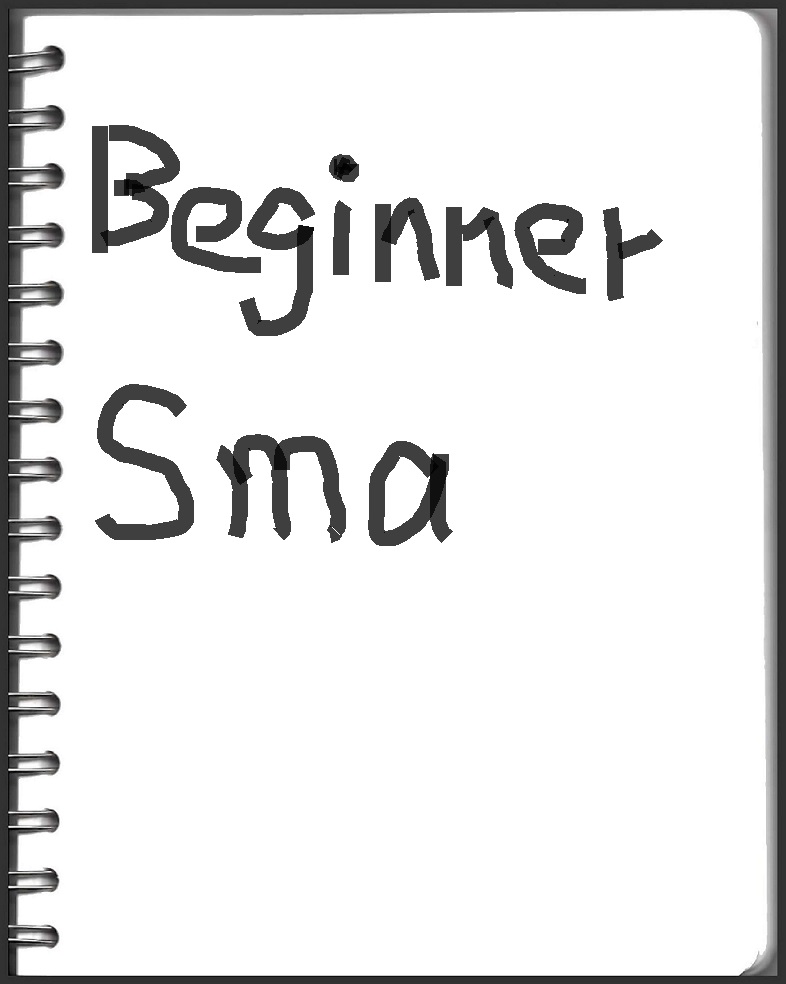 Beginner
Sma